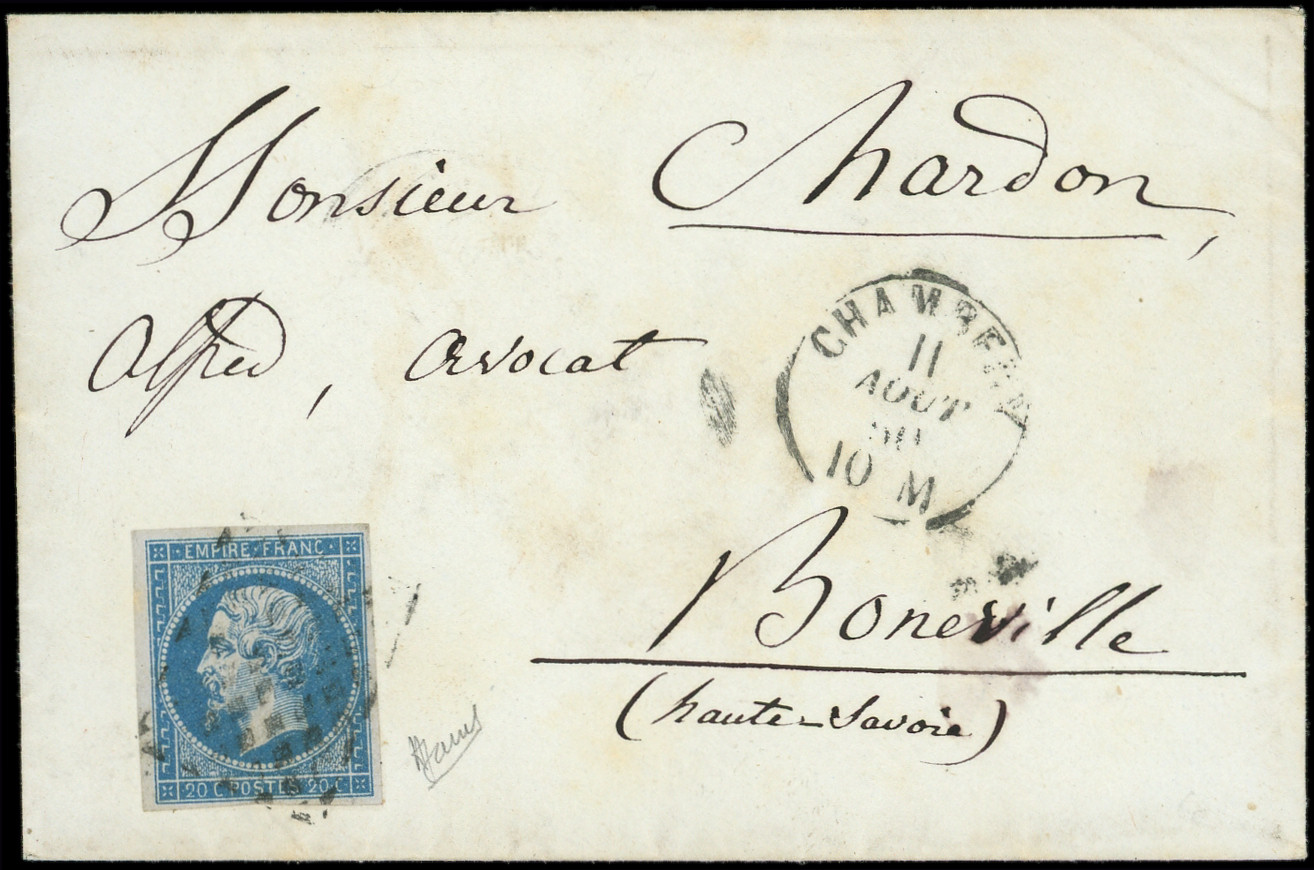 Monsieur Chardon,
Alfred, avocat
CHAMBERY
11
AOUT
10 M
EMPIRE FRANC
20 C POSTES 20 C
Boneville
(haute-Savoie)